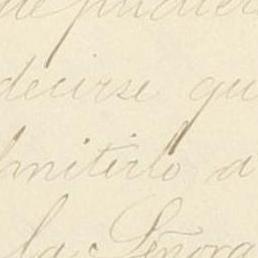 de pudier
decirse qu
mitirlo a
la Señora